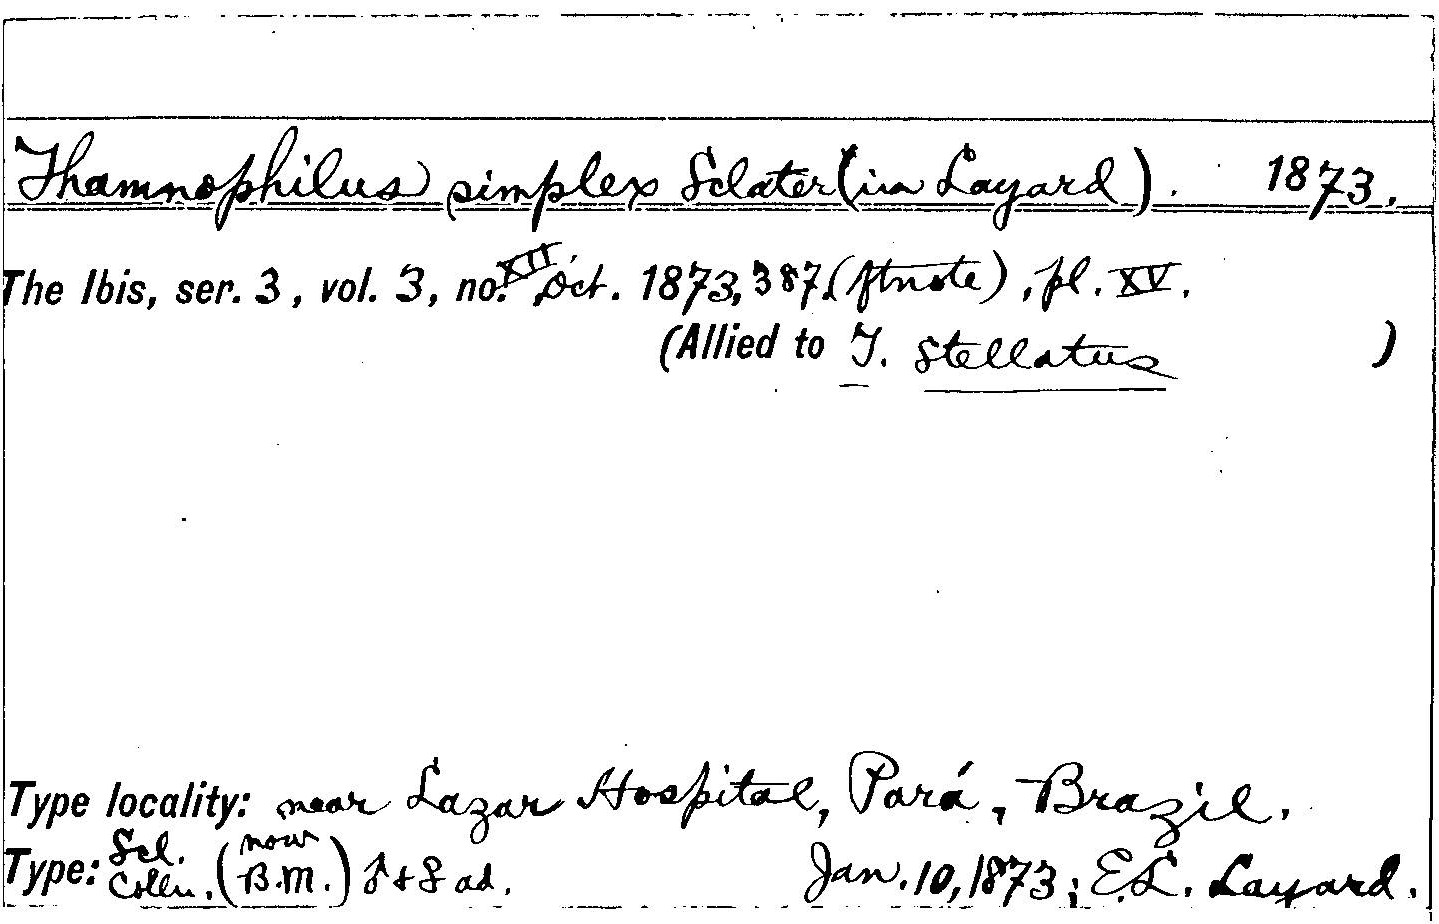 Thamnophilus simplex Sclater (in Layard). 1873.
The Ibis, ser. 3, vol. 3, no. XII, Oct. 1873, 387 (ftnote), pl. XV.
(Allied to T. stellatus )
Type locality: near Lazar Hospital, Pará, Brazil.
Type: Scl. Colln. (now B.M.) ♂ + ♀ ad. Jan. 10, 1873; E.L. Layard.